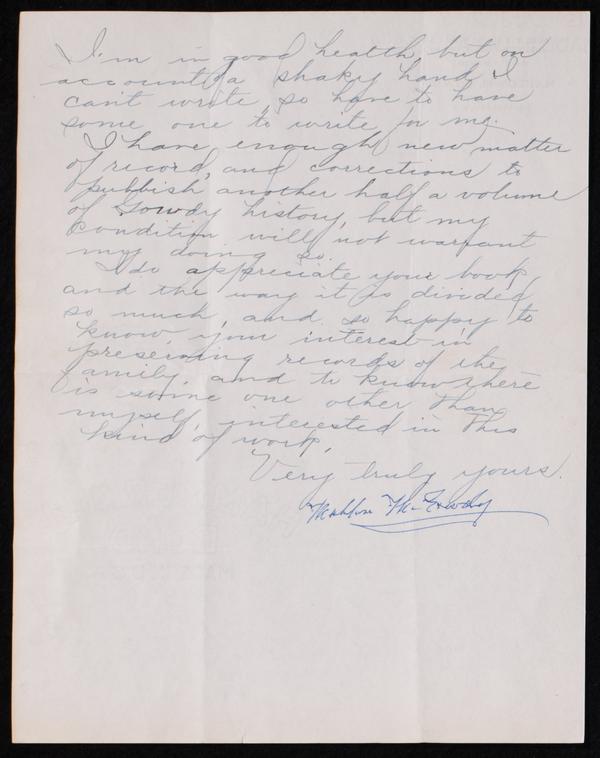 I'm in good health, but on
account of a shaky hand I
can't write, so have to have
some one to write for me.
I have enough new matter
of record, and corrections to
publish another half a volume
of Gowdy history, but my
condition will not warrant
my doing so.
I do appreciate your book,
and the way it is divided
so much, and so happy to
know your interest in
preserving records of the
family, and to know there
is some one other than
myself, interested in this
kind of work,
Very truly yours.
Mahlon M. Gowdy